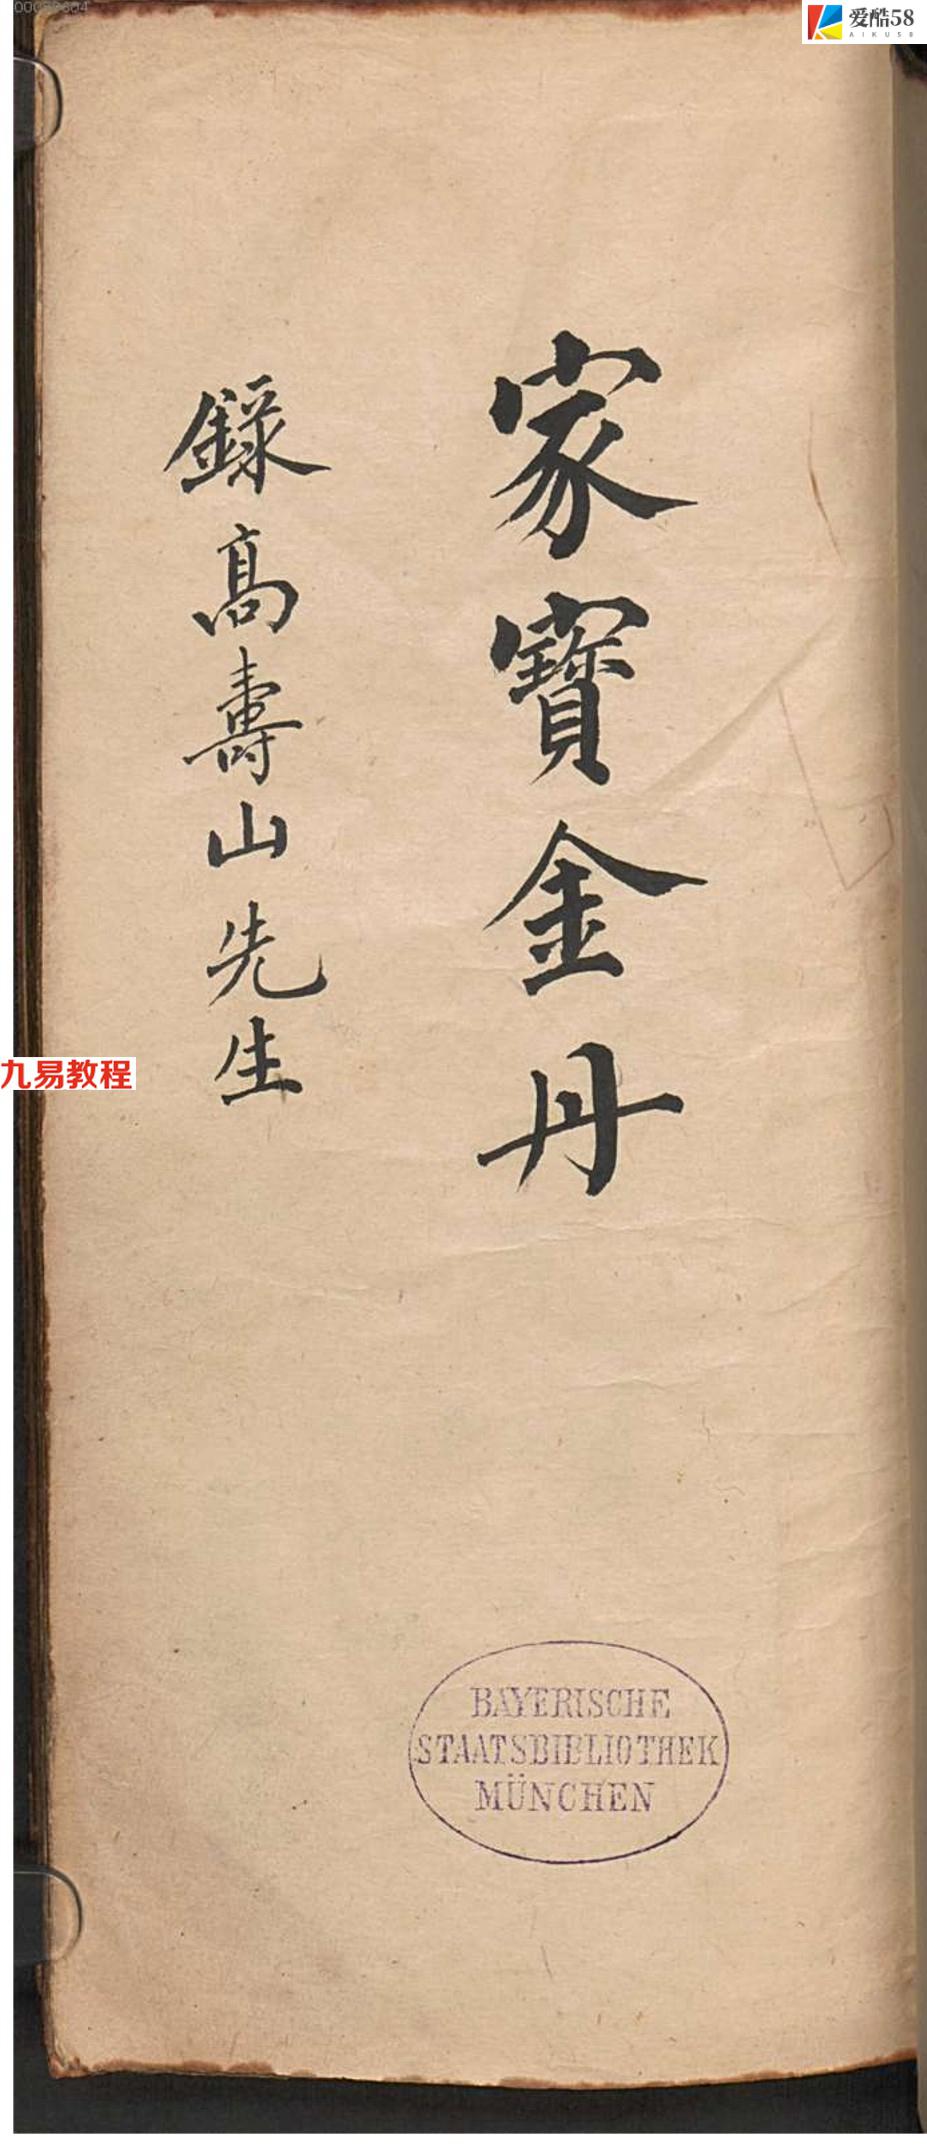 爱酷58
AIKU58
家寶金丹
錄高壽山先生
九易教程
BAYERISCHE
STAATSBIBLIOTHEK
MÜNCHEN